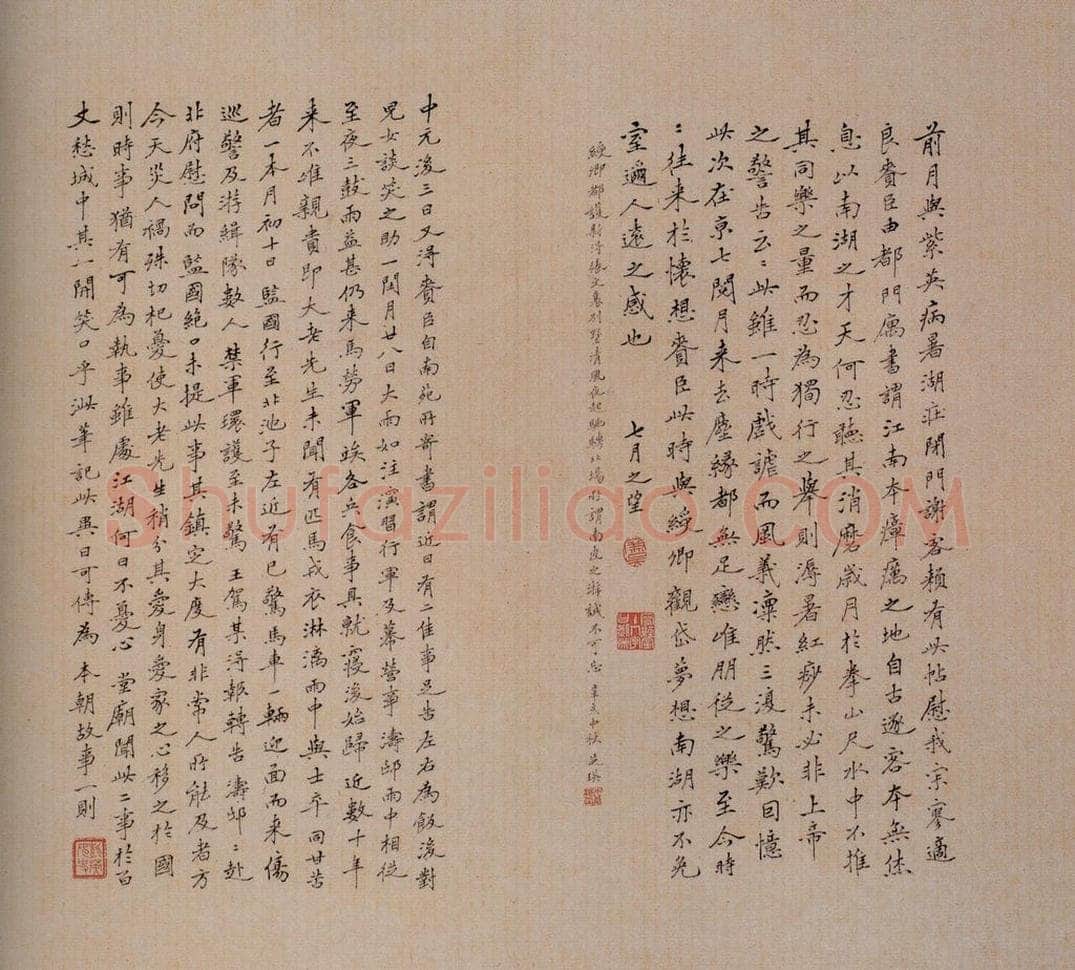 前月與紫英病暑湖莊閉門謝客頼有此帖慰我宗寥適
良賚臣由都門寓書謂江南本瘴癘之地自古逐客本無休
息以南湖之才天何忍聽其消磨歲月於拳山尺水中不推
其同樂之量而忍為獨行之舉則溽暑紅痧未必非上帝
之警告云〻此雖一時戲謔而風義凜然三復驚歎回憶
此次在京七閱月來去塵緣都無足戀唯朋從之樂至今時
〻往來於懷想賚臣此時與綬卿觀岱夢想南湖亦不免
室邇人遠之感也　七月之望
綬卿都護新得　別墅清風夜起　所謂南皮之游誠不可忘　辛亥中秋芝瑛
中元後三日又得賚臣自南苑所寄書謂近日有二佳事足告左右為飯後對
兒女談笑之助一閏月廿八日大雨如注演習行軍及幕營事濤邸雨中相從
至夜三鼓雨益甚仍來馬勞軍竢各兵食事具就寢後始歸近數十年
來不唯親貴即大老先生未聞有匹馬戎衣淋漓雨中與士卒同甘苦
者一本月初十日監國行至北池子左近有已驚馬車一輛迎面而來傷
巡警及游緝隊數人禁軍環護至未驚王駕某得報轉告濤邸〻赴
北府慰問而監國絕口未提此事其鎮定大度有非常人所能及者方
今天災人禍殊切杞憂使大老先生稍分其愛身愛家之心移之於國
則時事猶有可為執事雖處江湖何日不憂心堂廟聞此二事於百
丈愁城中其一開笑口乎泚筆記此異日可傳為本朝故事一則
Shufaziliao.COM